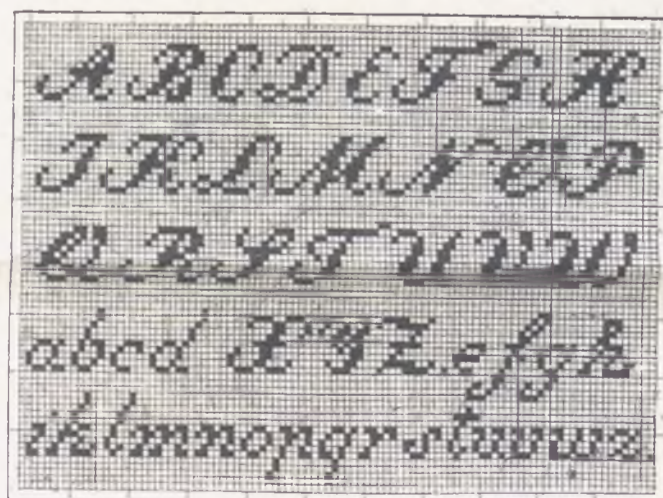 A B C D E F G H
I K L M N O P
Q R S T U V W
a b c d X Y Z e f g h
i k l m n o p q r s t u v w x